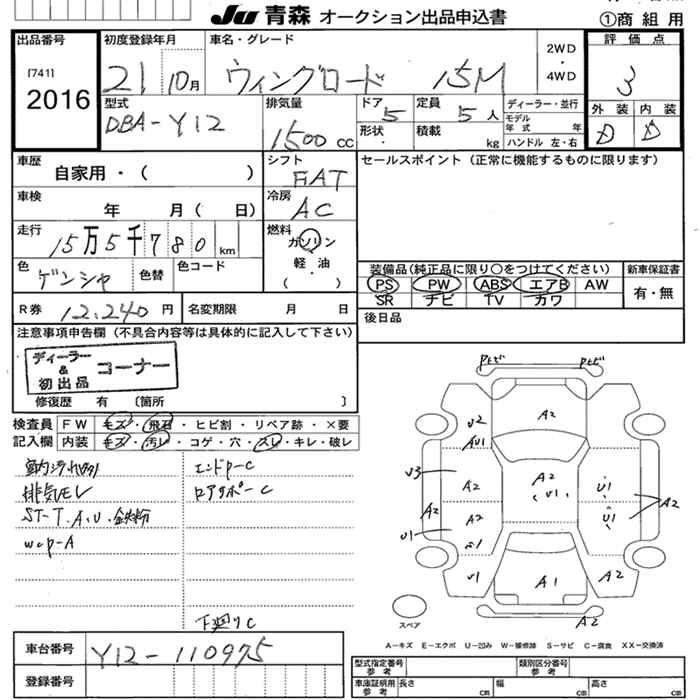 JU 青森 オークション出品申込書
①商 組 用
出品番号
[741]
2016
初度登録年月
21 10月
車名・グレード
ウィングロード 15M
2WD
・
4WD
評 価 点
3
外 装 内 装
D D
型式
DBA-Y12
排気量
1500 cc
ドア 5
形状 ・
定員 5 人
積載 kg
ディーラー・並行
モデル
年 式 年
ハンドル 左・右
車歴
自家用・( )
シフト
FAT
セールスポイント(正常に機能するものに限ります)
車検
年 月( 日)
冷房
AC
走行
15万5千780 km
燃料
ガソリン
軽・油
( ・ )
色
ゲンシャ
色替
色コード
装備品(純正品に限り○をつけてください)
PS PW ABS エアB AW
SR ナビ TV カワ
新車保証書
有・無
R券 12,240 円
名変期限 月 日
後日品
注意事項申告欄(不具合内容等は具体的に記入して下さい)
ディーラー
&
初出品
コーナー
修復歴 有 〔箇所 〕
検査員
記入欄
FW キズ・飛石・ヒビ割・リペア跡・×要
内装 キズ・汚レ・コゲ・穴・スレ・キレ・破レ
エンドP-C
排気モレ
ロアサポ-C
ST-T.A.U.鉄粉
wcp-A
下廻りC
車台番号
Y12-110975
登録番号
Pトビ Pトビ
A2
U2
AU1
U3
A2
A2
U1
A2
U1
A2
U1
U1
A2
U1
A1
A2
A2
スペア
A-キズ E-エクボ U-凹み W-補修跡 S-サビ C-腐食 XX-交換済
型式指定番号
参 考
類別区分番号
参 考
車庫証明用
参 考
長さ cm
幅 cm
高さ cm